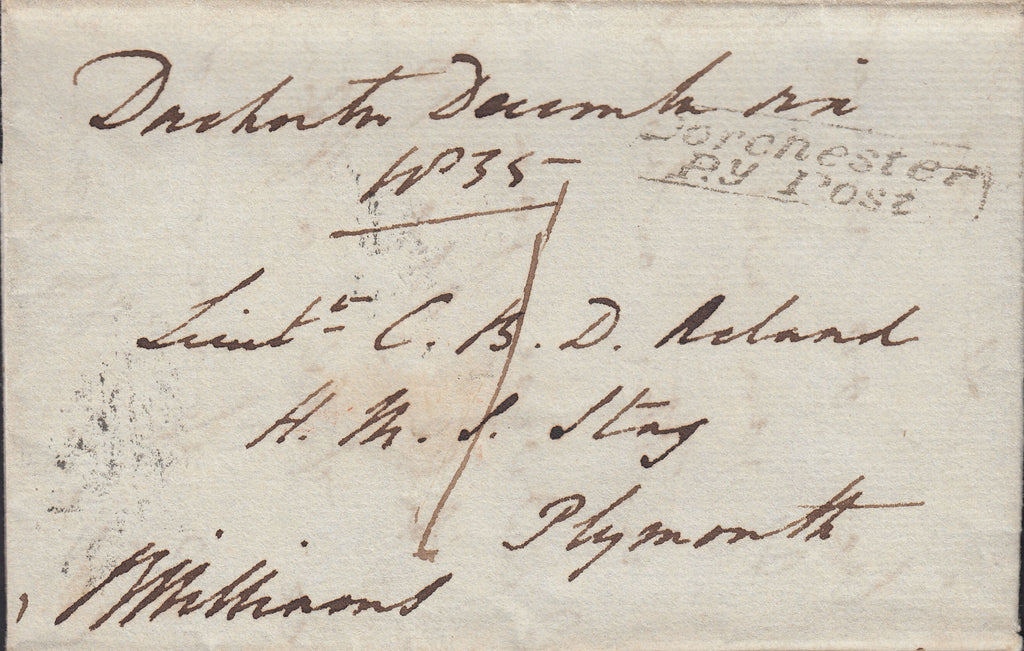 Dorchester December six
1835
Dorchester
P.y Post
Lieut.t C. B. D. Acland
H. M. S. Stag
Plymouth
Williams